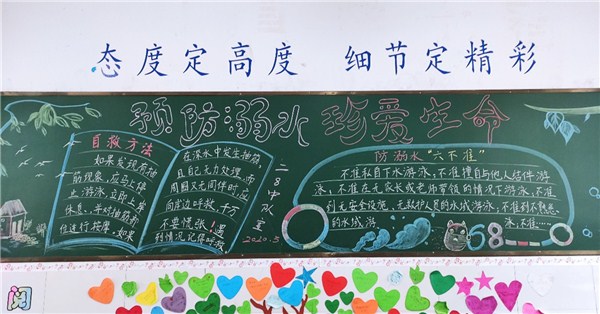 态度定高度 细节定精彩
预防溺水 珍爱生命
自救方法
如果发现有抽
筋现象,应马上停
止游泳,立即上岸
休息,并对抽筋部
位进行按摩,如果
在深水中发生抽筋
且自己无力处理,而
周围又无同伴时,应
向岸边呼救,千万
不要慌张,遇
到情况记得呼救
二8中队宣
2020.5
防溺水“六不准”
不准私自下水游泳,不准擅自与他人结伴游
泳,不准在无家长或老师带领的情况下游泳,不准
到无安全设施,无救护人员的水域游泳,不准到不熟悉
的水域游
泳,不准……
阅